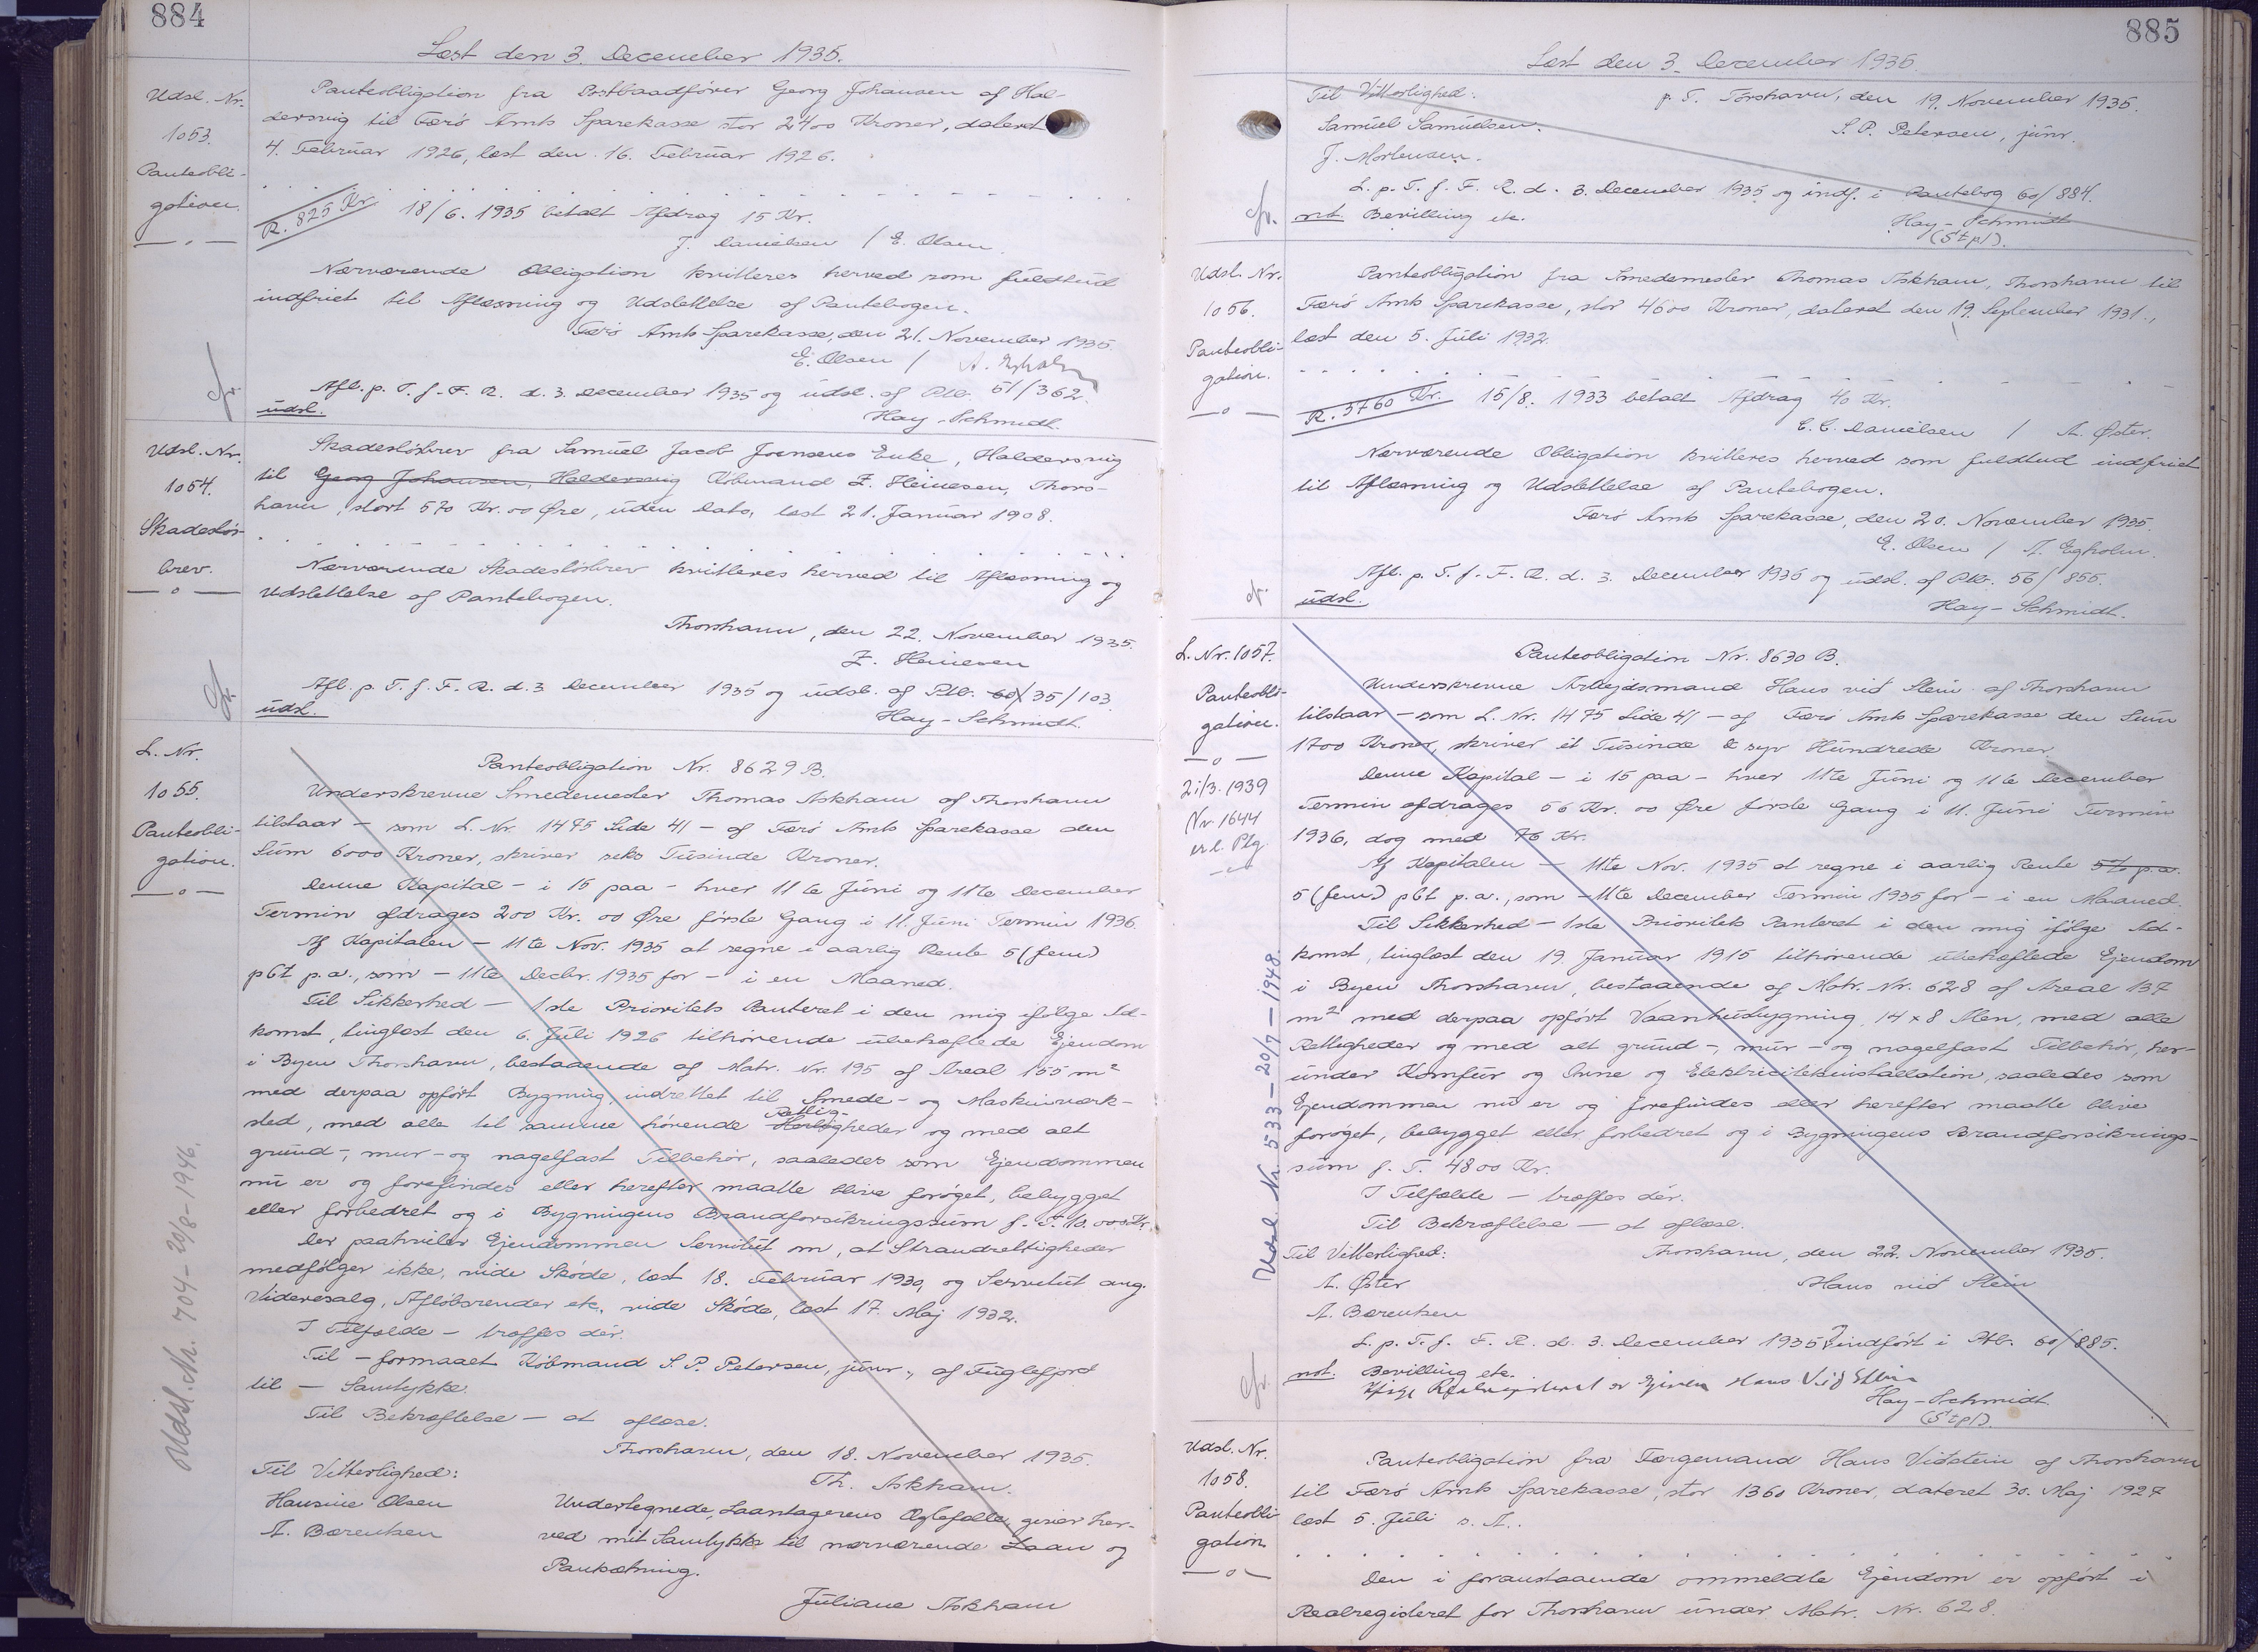 884
Læst den 3. December 1935.
Udsl. Nr.
1053.
Panteobli-
gation.
Panteobligation fra Postbaadfører Georg Johansen af Hal-
dersvig til Færø Amts Sparekasse stor 2400 Kroner, dateret
4. Februar 1926, læst den 16. Februar 1926.
R. 825 Kr. 18/6. 1935 betalt Afdrag 15 Kr.
J. Danielsen / E. Olsen
Nærværende Obligation kvitteres herved som fuldtud
indfriet til Aflæsning og Udslettelse af Pantebogen.
Færø Amts Sparekasse, den 21. November 1935.
E. Olsen /
Afl. p. T. f. F. R. d. 3. December 1935 og udsl. af Ptb. 51/362.
udsl.
Hay-Schmidt.
Udsl. Nr.
1054.
Skadesløs-
brev.
Skadesløsbrev fra Samuel Jacob Joensens Enke, Haldersvig
til Georg Johansen, Haldersvig Købmand Z. Heinesen, Thors-
havn, stort 570 Kr. 00 Øre, uden Dato, læst 21. Januar 1908.
Nærværende Skadesløsbrev kvitteres herved til Aflæsning og
Udslettelse af Pantebogen.
Thorshavn, den 22. November 1935.
Z. Heinesen
Afl. p. T. f. F. R. d. 3 December 1935 og udsl. af Ptb. 60/ 35/103.
udsl.
Hay-Schmidt.
L. Nr.
1055.
Panteobli-
gation.
Panteobligation Nr. 8629 B.
Underskrevne Smedemester Thomas Askham af Thorshavn
tilstaar – som L. Nr. 1475 Side 41 – af Færø Amts Sparekasse den
Sum 6000 Kroner, skriver seks Tusinde Kroner.
Denne Kapital – i 15 paa – hver 11te Juni og 11te December
Termin afdrages 200 Kr. 00 Øre første Gang i 11. Juni Termin 1936.
Af Kapitalen – 11te Nov. 1935 at regne i aarlig Rente 5 (fem)
pCt p.a., som – 11te Decbr. 1935 for – i en Maaned.
Til Sikkerhed – 1ste Prioritets Panteret i den mig ifølge Ad-
komst, tinglæst den 6. Juli 1926 tilhørende ubehæftede Ejendom
i Byen Thorshavn, bestaaende af Matr. Nr. 195 af Areal 155 m²
med derpaa opført Bygning, indrettet til Smede- og Maskinværk-
sted, med alle til samme hørende Herligheder og med alt
Rettig-
grund-, mur- og nagelfast Tilbehør, saaledes som Ejendommen
nu er og forefindes eller herefter maatte blive forøget, bebygget
eller forbedret og i Bygningens Brandforsikringssum f. T. 10.000 Kr.
Der paahviler Ejendommen Servitut om, at Strandrettigheder
medfølger ikke, vide Skøde, læst 18. Februar 1930, og Servitut ang.
Videresalg, Afløbsrender etc. vide Skøde, læst 17. Maj 1932.
I Tilfælde – træffes dér.
Til – formaaet Købmand S. P. Petersen, junr., af Fuglefjord
til – Samtykke.
Til Bekræftelse – at aflæse.
Thorshavn, den 18. November 1935.
Til Vitterlighed:
Th. Askham.
Hansine Olsen
A. Bærentsen
Undertegnede, Laantagerens Ægtefælle, giver her-
ved mit Samtykke til nærværende Laan og
Pantsætning.
Juliane Askham
Udsl. Nr. 704 – 20/8 – 1946.
885
Læst den 3. December 1935
Til Vitterlighed:
p. T. Torshavn, den 19. November 1935.
Samuel Samuelsen.
S. P. Petersen, junr.
J. Mortensen.
L. p. T. f. F. R. d. 3. December 1935 og indf. i Pantebog 60/884.
not. Bevilling etc.
Hay-Schmidt
(Stpl).
Udsl. Nr.
1056.
Panteobli-
gation.
Panteobligation fra Smedemester Thomas Askham, Thorshavn til
Færø Amts Sparekasse, stor 4600 Kroner, dateret den 19. September 1931.,
læst den 5. Juli 1932.
R. 3760 Kr. 15/8. 1933 betalt Afdrag 40 Kr.
C. C. Danielsen / A. Øster.
Nærværende Obligation kvitteres herved som fuldtud indfriet
til Aflæsning og Udslettelse af Pantebogen.
Færø Amts Sparekasse, den 20. November 1935.
E. Olsen / A. Egholm.
Afl. p. T. f. F. R. d. 3. December 1935 og udsl. af Ptb. 56/855.
udsl.
Hay-Schmidt.
L. Nr. 1057.
Panteobli-
gation.
21/3. 1939
Nr 1644
Panteobligation Nr. 8630 B.
Underskrevne Arbejdsmand Hans við Stein af Thorshavn
tilstaar – som L. Nr. 1475 Side 41 – af Færø Amts Sparekasse den Sum
1700 Kroner, skriver et Tusinde & syv Hundrede Kroner.
Denne Kapital – i 15 paa – hver 11te Juni og 11te December
Termin afdrages 56 Kr. 00 Øre første Gang i 11. Juni Termin
1936, dog med 76 Kr.
Af Kapitalen – 11te Nov. 1935 at regne i aarlig Rente 5% p.a.
5 (fem) pCt p.a., som – 11te December Termin 1935 for – i en Maaned.
Til Sikkerhed – 1ste Prioritets Panteret i den mig ifølge Ad-
komst, tinglæst den 19. Januar 1915 tilhørende ubehæftede Ejendom
i Byen Thorshavn, bestaaende af Matr. Nr. 628 af Areal 137
m² med derpaa opført Vaaningsbygning, 14 x 8 Alen, med alle
Rettigheder og med alt grund-, mur- og nagelfast Tilbehør, her-
under Komfur og Ovne og Elektricitetsinstallation, saaledes som
Ejendommen nu er og forefindes eller herefter maatte blive
forøget, bebygget eller forbedret og i Bygningens Brandforsikrings-
sum f. T. 4800 Kr.
I Tilfælde – træffes dér.
Til Bekræftelse – at aflæse.
Til Vitterlighed:
Thorshavn, den 22. November 1935.
A. Øster
Hans við Stein
A. Bærentsen
L. p. T. f. F. R. d. 3. December 1935 indført i Ptb. 60/885.
not. Bevilling etc.
Realregisteret er Ejeren Hans Við Stein
Hay-Schmidt.
(Stpl).
Udsl. Nr. 533 – 20/7 – 1948.
Udsl. Nr.
1058.
Panteobli-
gation.
Panteobligation fra Færgemand Hans Viðstein af Thorshavn
til Færø Amts Sparekasse, stor 1360 Kroner, dateret 30. Maj 1927
læst 5. Juli s. A..
Den i foranstaaende ommeldte Ejendom er opført i
Realregisteret for Thorshavn under Matr. Nr. 628.